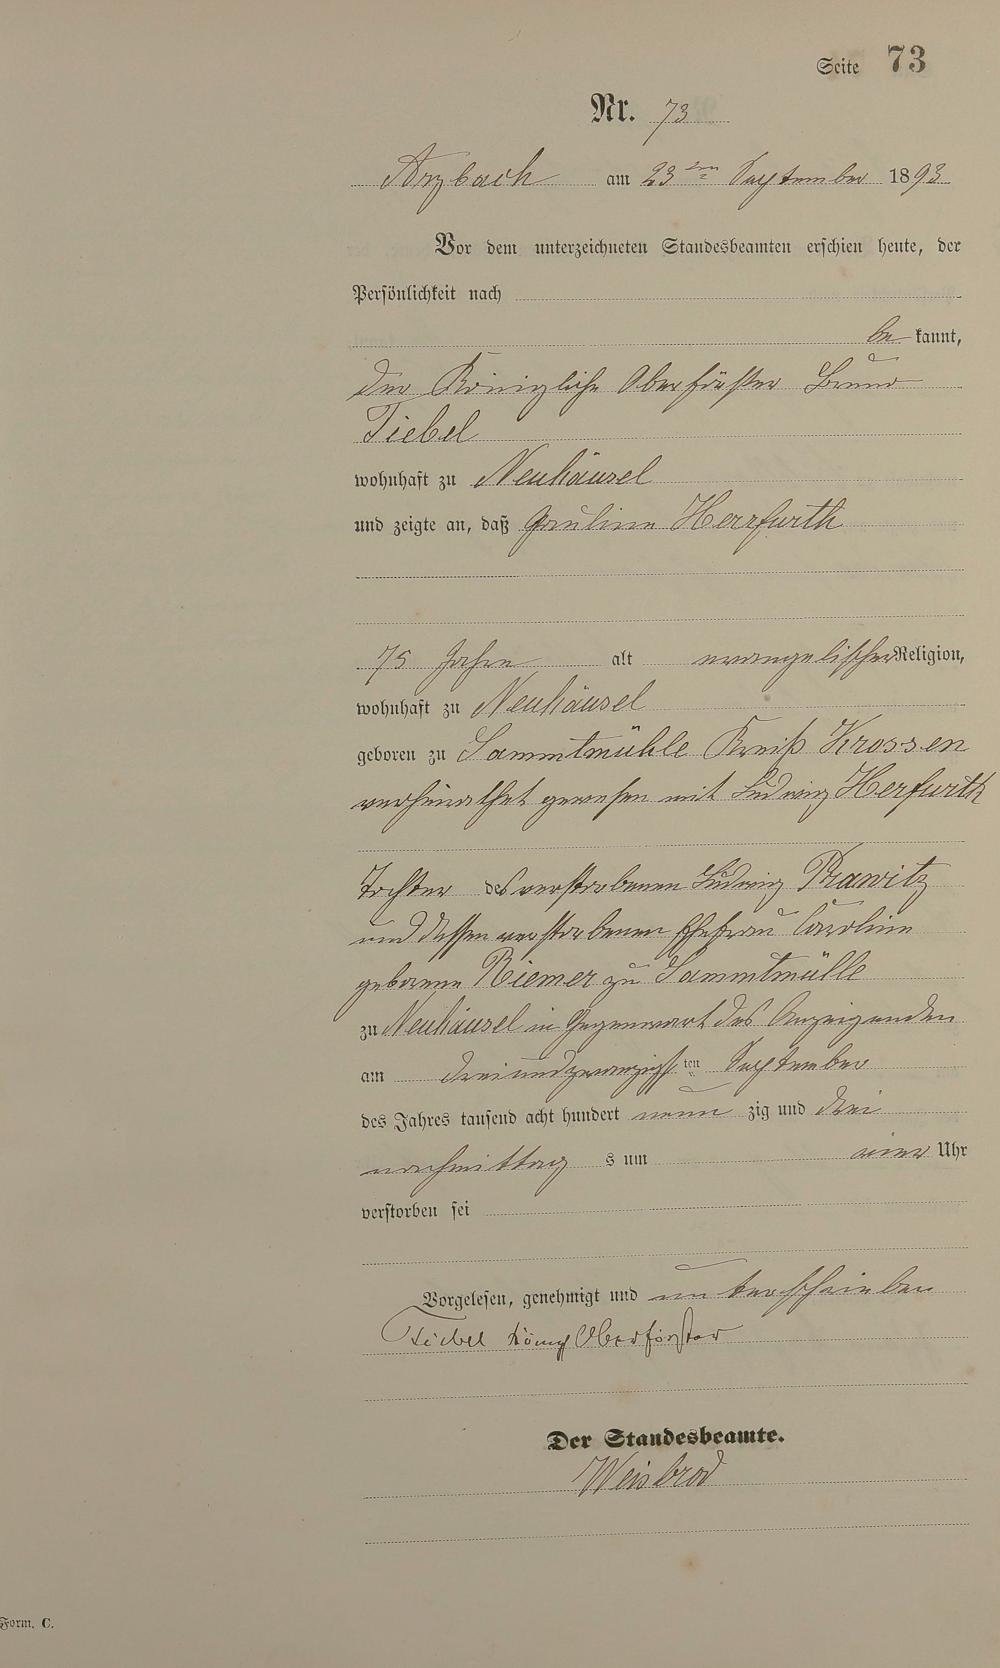 Seite 73
Nr. 73
Arzbach am 23ten September 1893
Vor dem unterzeichneten Standesbeamten erschien heute, der
Persönlichkeit nach
be kannt,
der Königliche Oberförster Bruno
Tiebel
wohnhaft zu Neuhäusel
und zeigte an, daß Pauline Herrfurth
75 Jahre alt evangelischer Religion,
wohnhaft zu Neuhäusel
geboren zu Sammtmühle Kreiß Krossen
verheirathet gewesen mit Ludwig Herfurth
Tochter des verstorbenen Ludwig Prawitz
und dessen verstorbenen Ehefrau Caroline
geborene Riemer zu Sammtmülle
zu Neuhäusel in Gegenwart des Anzeigenden
am dreiundzwanzigsten September
des Jahres tausend acht hundert neun zig und drei
nachmittag s um vier Uhr
verstorben sei
Vorgelesen, genehmigt und unterschrieben
Tiebel königl Oberförster
Der Standesbeamte.
Weisbrod
Form. C.